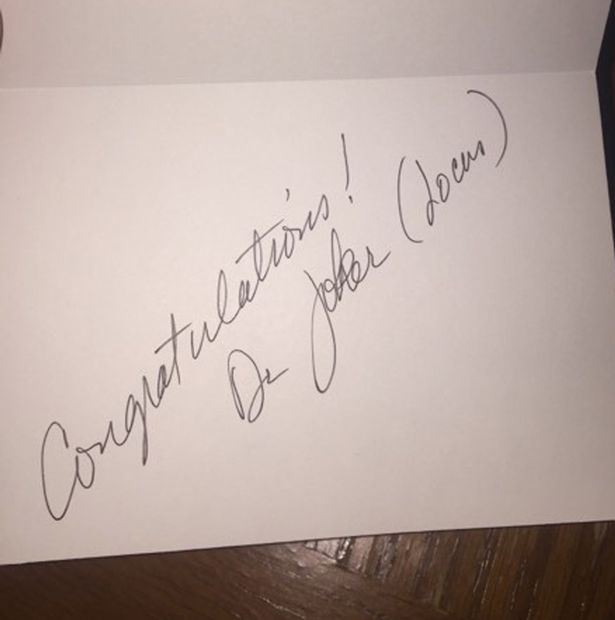 Congratulations!
Dr Joker (Locus)